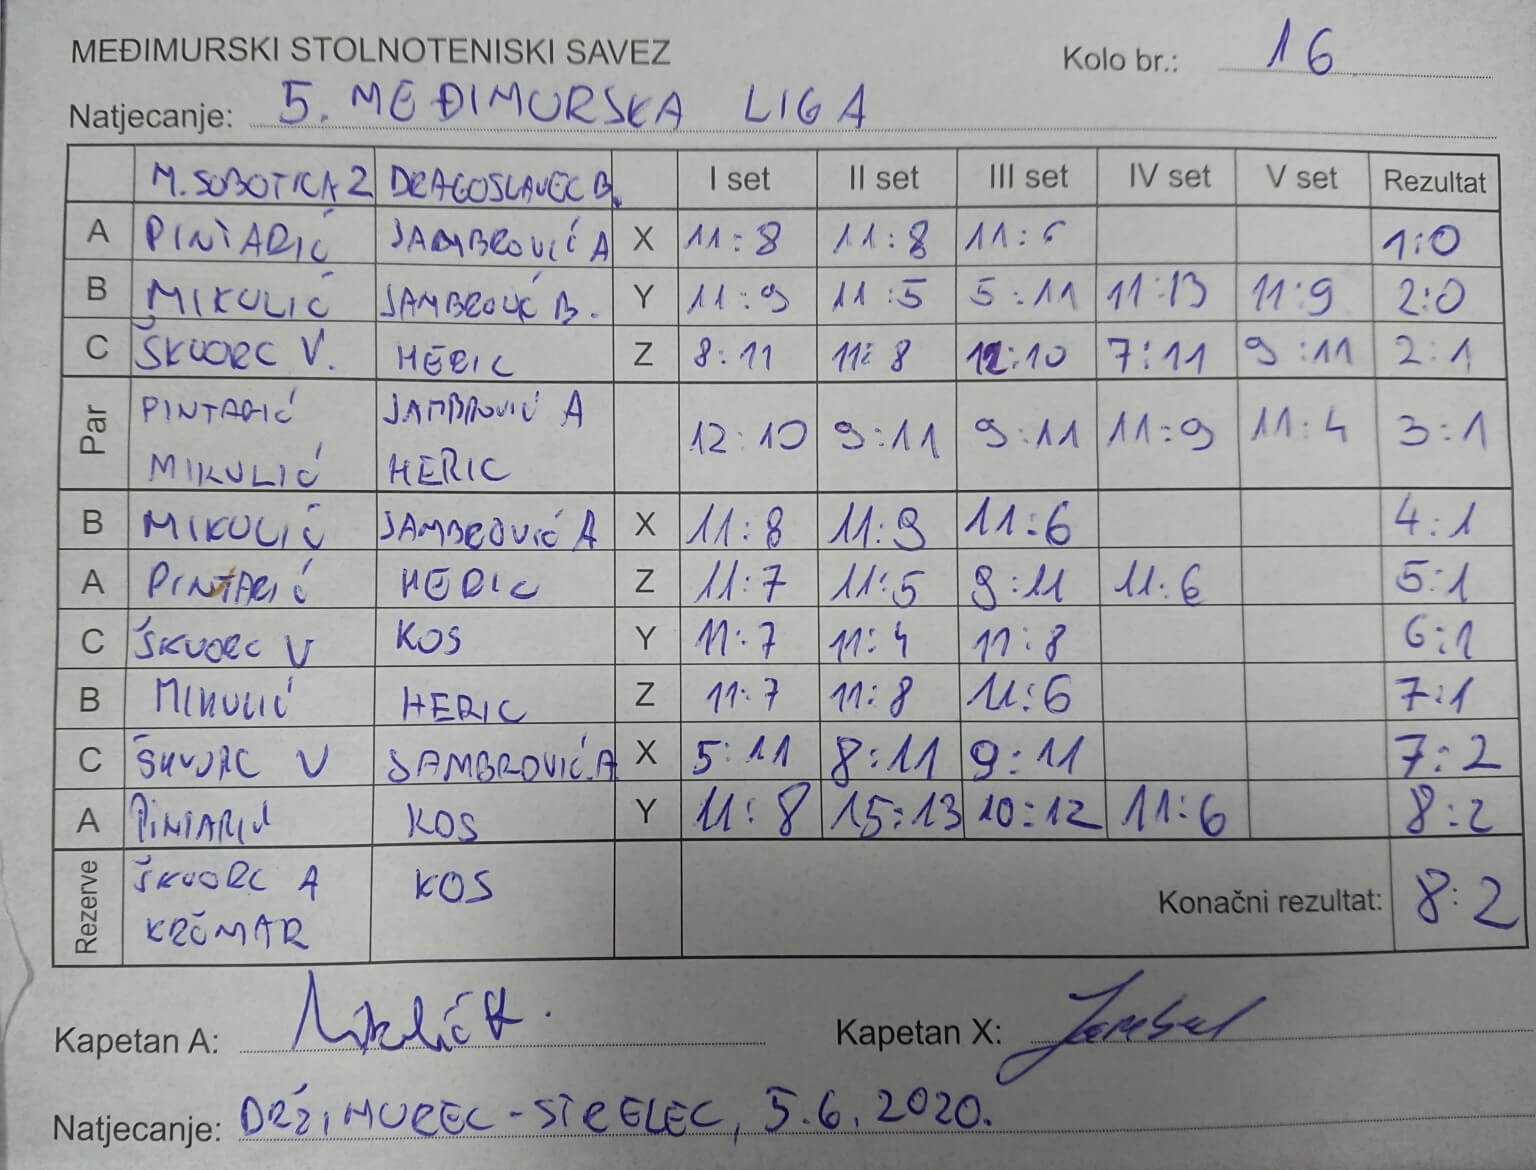 MEĐIMURSKI STOLNOTENISKI SAVEZ Kolo br.: 16
Natjecanje: 5. MEĐIMURSKA LIGA
M. SOBOTICA 2 DRAGOSLAVEC B. I set II set III set IV set V set Rezultat
A PINTARIĆ JAMBROVIĆ A X 11:8 11:8 11:6 1:0
B MIKULIĆ JAMBROVIĆ B. Y 11:9 11:5 5:11 11:13 11:9 2:0
C ŠKVORC V. HERIC Z 8:11 11:8 12:10 7:11 9:11 2:1
Par PINTARIĆ MIKULIĆ JAMBROVIĆ A HERIC 12:10 9:11 9:11 11:9 11:4 3:1
B MIKULIĆ JAMBROVIĆ A X 11:8 11:9 11:6 4:1
A PINTARIĆ HERIC Z 11:7 11:5 9:11 11:6 5:1
C ŠKVORC V KOS Y 11:7 11:4 11:8 6:1
B MIKULIĆ HERIC Z 11:7 11:8 11:6 7:1
C ŠKVORC V JAMBROVIĆ A X 5:11 8:11 9:11 7:2
A PINTARIĆ KOS Y 11:8 15:13 10:12 11:6 8:2
Rezerve ŠKVORC A KOS
KRČMAR Konačni rezultat: 8:2
Kapetan A: Kapetan X:
Natjecanje: DRŽIMUREC-STRELEC, 5.6.2020.